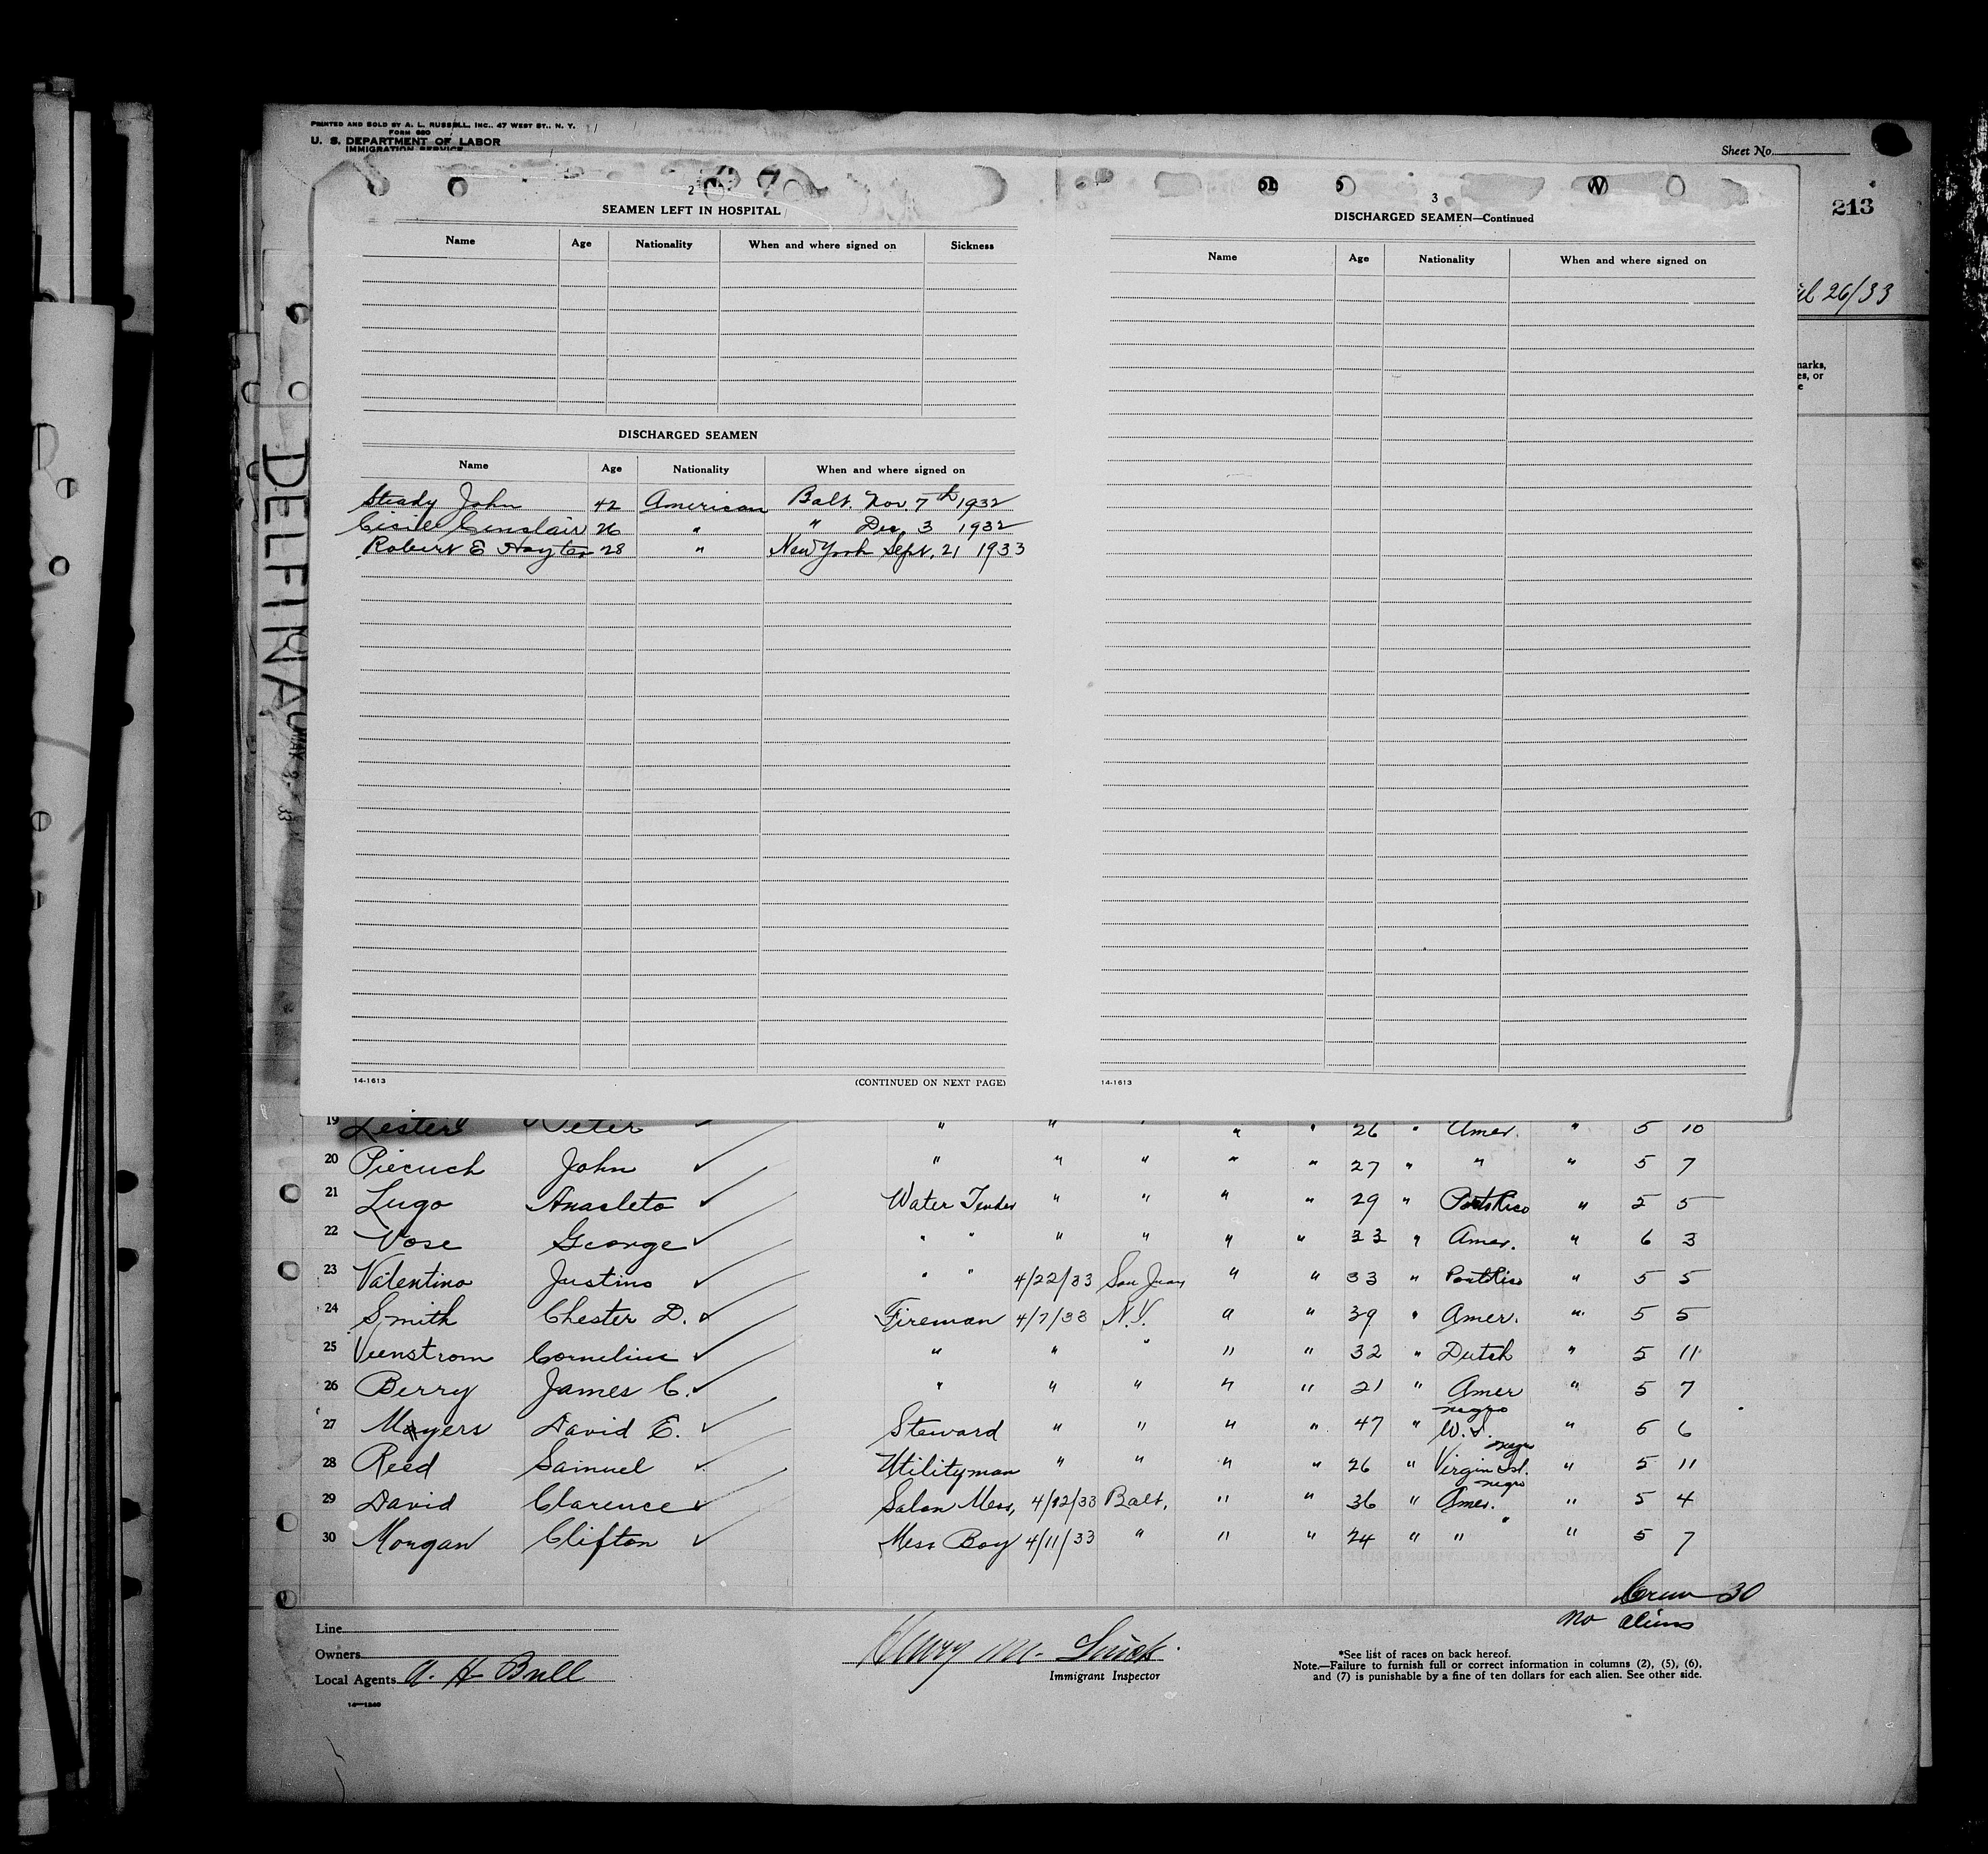 PRINTED AND SOLD BY A. L. RUSSELL, INC., 47 WEST ST., N. Y.
FORM 680
U. S. DEPARTMENT OF LABOR
IMMIGRATION SERVICE
Sheet No.
213
26/33
DELFINA
MAY 2 - 33
2
SEAMEN LEFT IN HOSPITAL
Name Age Nationality When and where signed on Sickness
DISCHARGED SEAMEN
Name Age Nationality When and where signed on
Steady John 42 American Balt. Nov 7th 1932
26 " " Dec. 3 1932
Robert E Hayter 28 " New York Sept. 21 1933
14-1613 (CONTINUED ON NEXT PAGE)
3
DISCHARGED SEAMEN—Continued
Name Age Nationality When and where signed on
14-1613
19 Lester Peter " " " " " 26 " Amer. " 5 10
20 Piecuch John " " " " " 27 " " " 5 7
21 Lugo Anacleto Water Tender " " " " 29 " Porto Rico " 5 5
22 Vose George " " " " " " 33 " Amer. " 6 3
23 Valentino Justino " " 4/22/33 San Juan " " 33 " Porto Rico " 5 5
24 Smith Chester D. Fireman 4/7/33 N.Y. " " 39 " Amer. " 5 5
25 Veenstrom Cornelius " " " " " 32 " Dutch " 5 11
26 Berry James C. " " " " " 21 " Amer " 5 7
27 Mayers David E. Steward " " " " 47 " negro W.I. " 5 6
28 Reed Samuel Utilityman " " " " 26 " negro Virgin Isl. " 5 11
29 David Clarence Salon Mess. 4/12/33 Balt. " " 36 " negro Amer. " 5 4
30 Morgan Clifton Mess Boy 4/11/33 " " " 24 " " " " 5 7
Crew 30
No aliens
Line
Owners
Local Agents A. H. Bull
Henry M.
Immigrant Inspector
*See list of races on back hereof.
Note.—Failure to furnish full or correct information in columns (2), (5), (6),
and (7) is punishable by a fine of ten dollars for each alien. See other side.